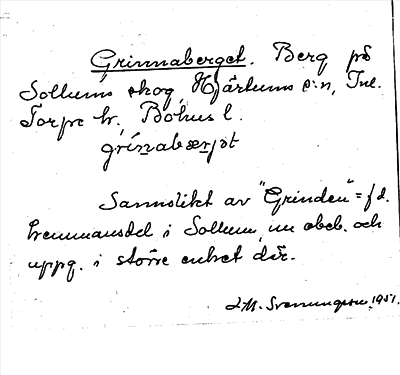 Grinnaberget. Berg på
Sollums skog, Hjärtums s:n, Inl.
Torpe hr, Bohus l.
grínabærjət
Sannolikt av "Grinden" = f.d.
hemmansdel i Sollum, nu obeb. och
uppg. i större enhet där.
1951.